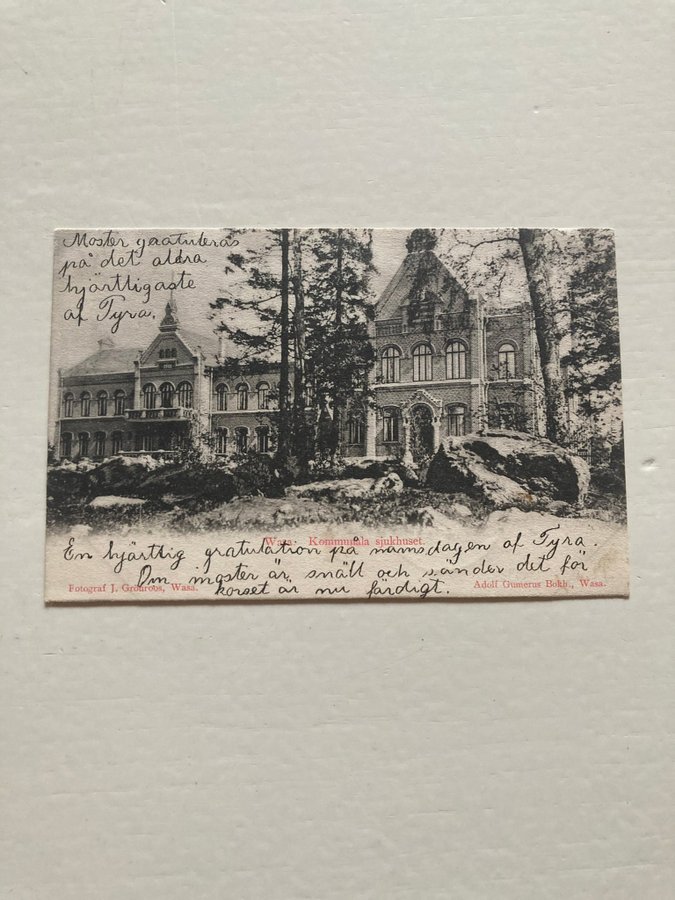 Moster gratuleras
på det aldra
hjärtligaste
af Tyra.
Wasa. Kommunala sjukhuset.
En hjärtlig gratulation på namsdagen af Tyra.
Om moster är snäll och sänder det för
korset är nu färdigt.
Fotograf J. Grönroos, Wasa.
Adolf Gumerus Bokh., Wasa.